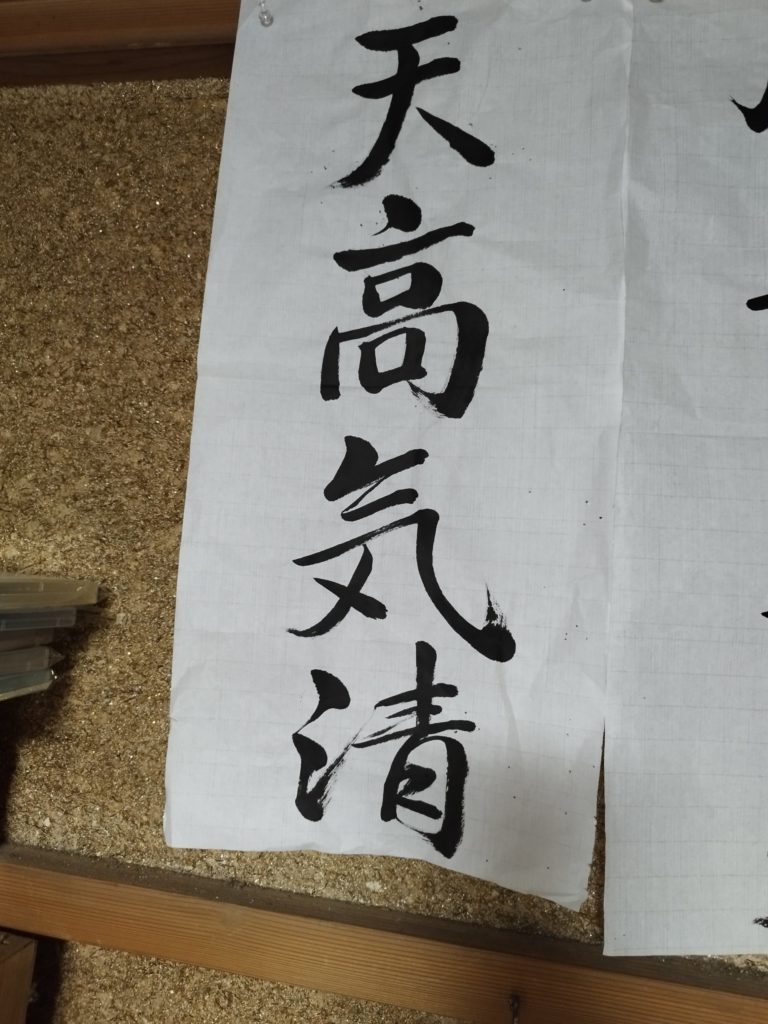 天高気清